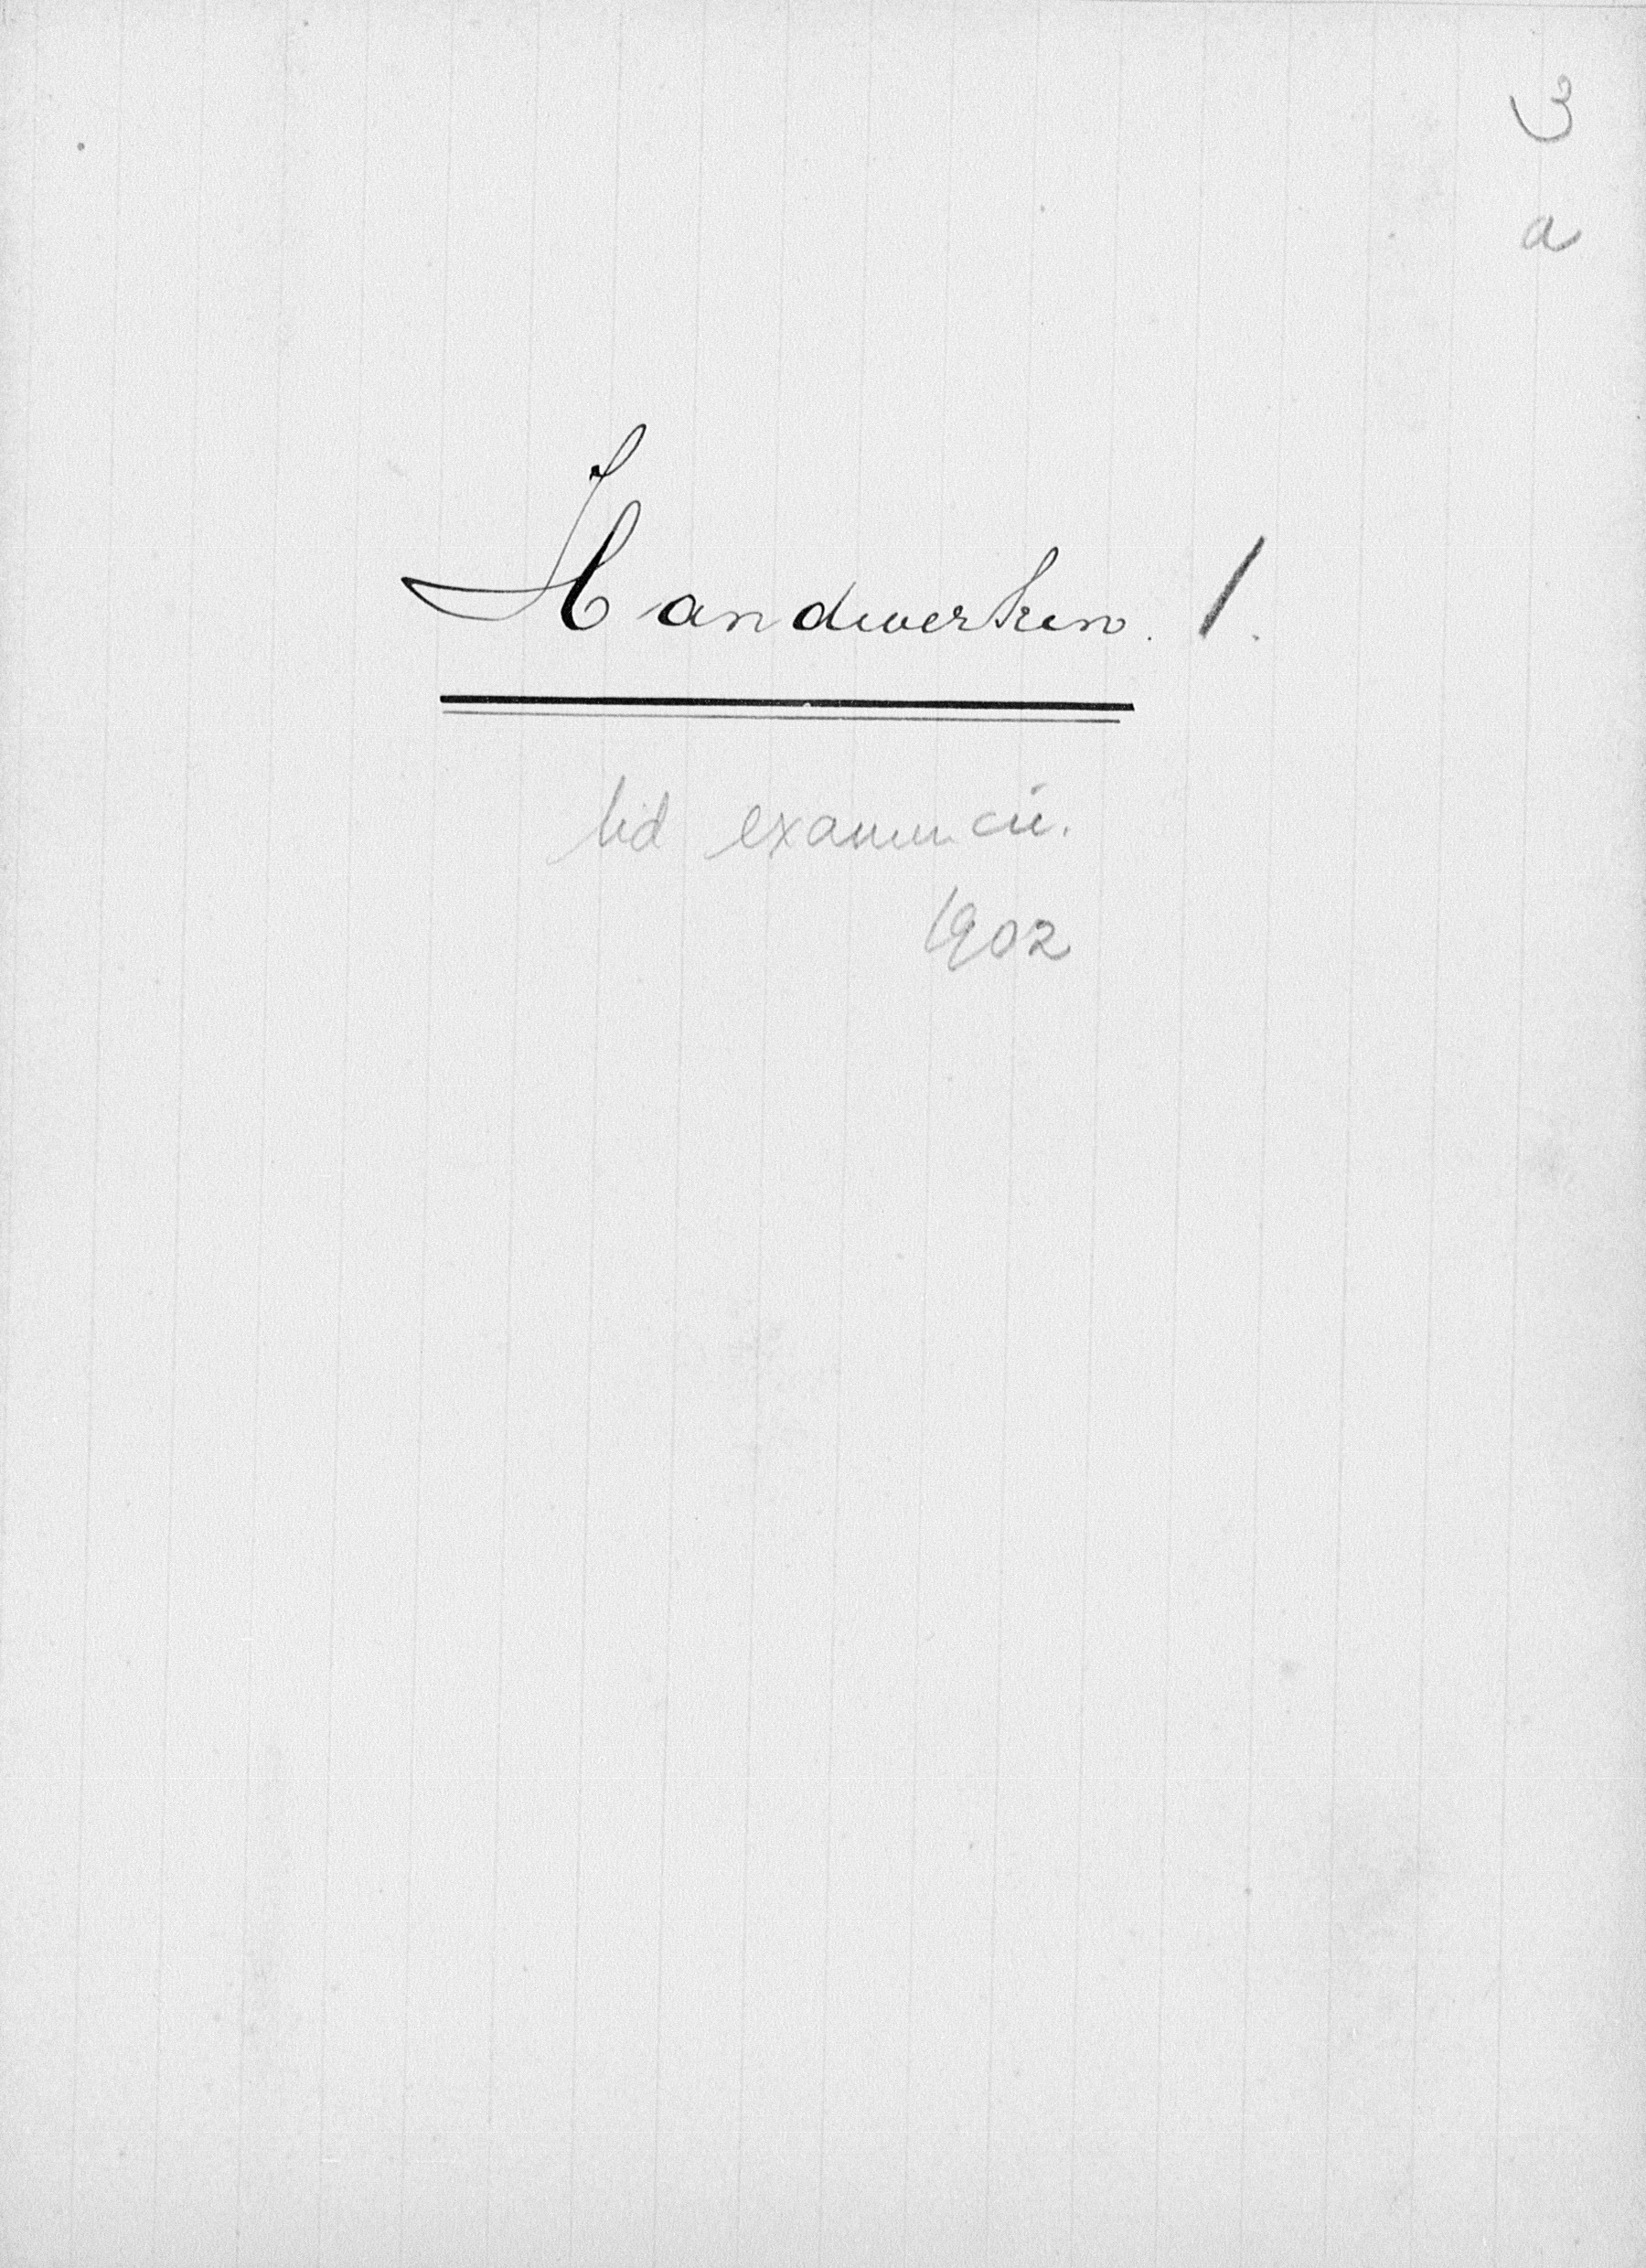 3
a
Handwerken. 1.
lid examen cie.
1902